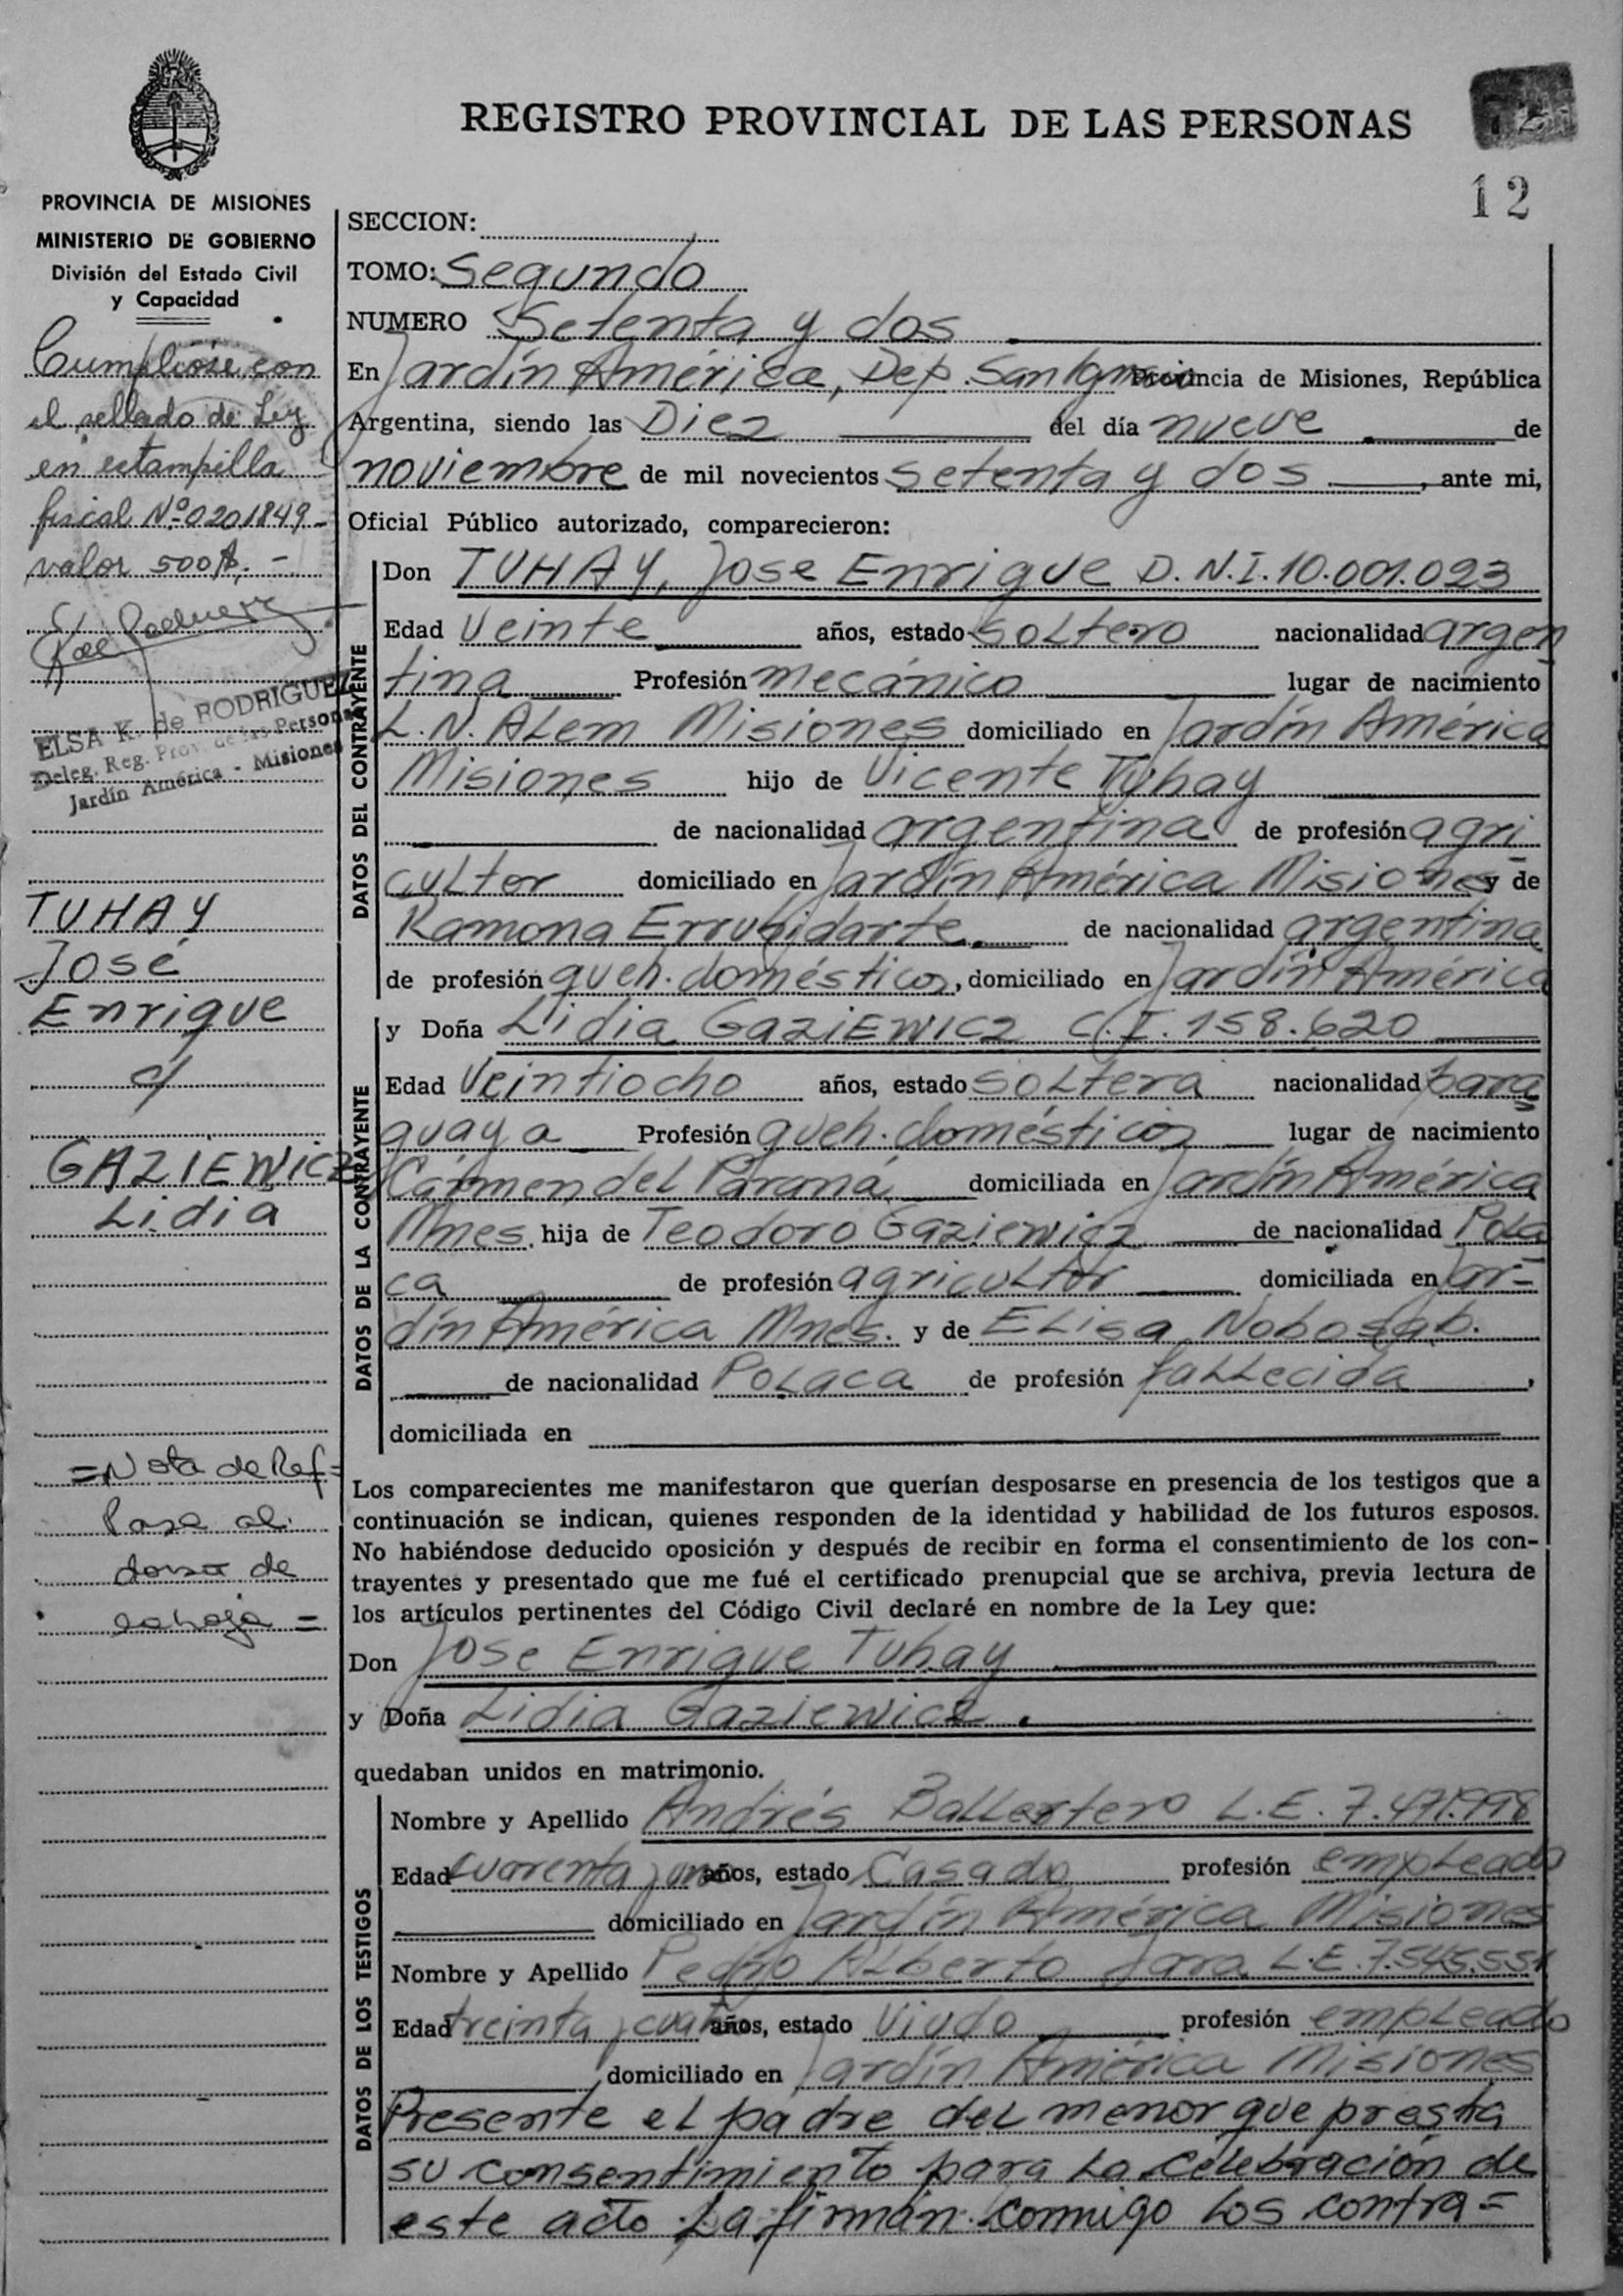 REGISTRO PROVINCIAL DE LAS PERSONAS
72
12
PROVINCIA DE MISIONES
MINISTERIO DE GOBIERNO
División del Estado Civil
y Capacidad
Cumplióse con
el sellado de Ley
en estampilla
fiscal Nº 0201849-
valor 500 $. -
ELSA K. de RODRIGUEZ
Deleg. Reg. Prov. de las Personas
Jardín América - Misiones
TUHAY
José
Enrique
c/
GAZIEWICZ
Lidia
=Nota de Ref=
Pasa al
dorso de
la hoja =
SECCION:
TOMO: Segundo
NUMERO Setenta y dos
En Jardín América, Dep. San Ignacio Provincia de Misiones, República
Argentina, siendo las Diez del día nueve de
noviembre de mil novecientos setenta y dos, ante mi,
Oficial Público autorizado, comparecieron:
DATOS DEL CONTRAYENTE
Don TUHAY, Jose Enrique D.N.I. 10.001.023
Edad Veinte años, estado soltero nacionalidad argen
tina Profesión mecánico lugar de nacimiento
L.N. ALem Misiones domiciliado en Jardín América
Misiones hijo de Vicente Tuhay
de nacionalidad argentina de profesión agri
cultor domiciliado en Jardín América Misiones y de
Ramona de nacionalidad argentina
de profesión queh. domésticos, domiciliado en Jardín América
DATOS DE LA CONTRAYENTE
y Doña Lidia GAZIEWICZ C.I. 158.620
Edad Veintiocho años, estado soltera nacionalidad para
guaya Profesión queh. domésticos lugar de nacimiento
Cármen del Paraná domiciliada en Jardín América
Mnes. hija de Teodoro Gaziewicz de nacionalidad Pola
ca de profesión agricultor domiciliada en Jar=
dín América Mnes. y de ELisa
de nacionalidad POLACA de profesión faLLecida,
domiciliada en
Los comparecientes me manifestaron que querían desposarse en presencia de los testigos que a
continuación se indican, quienes responden de la identidad y habilidad de los futuros esposos.
No habiéndose deducido oposición y después de recibir en forma el consentimiento de los con-
trayentes y presentado que me fué el certificado prenupcial que se archiva, previa lectura de
los artículos pertinentes del Código Civil declaré en nombre de la Ley que:
Don Jose Enrique Tuhay
y Doña Lidia Gaziewicz.
quedaban unidos en matrimonio.
DATOS DE LOS TESTIGOS
Nombre y Apellido Andrés Ballestero L.E. 7.471.998
Edad cuarenta y uno años, estado Casado profesión empleado
domiciliado en Jardín América Misiones
Nombre y Apellido Pedro ALberto Jara L.E. 7.545.551
Edad treinta y cuatro años, estado Viudo profesión empleado
domiciliado en Jardín América Misiones
Presente el padre del menor que presta
su consentimiento para la celebración de
este acto La firman conmigo los contra=